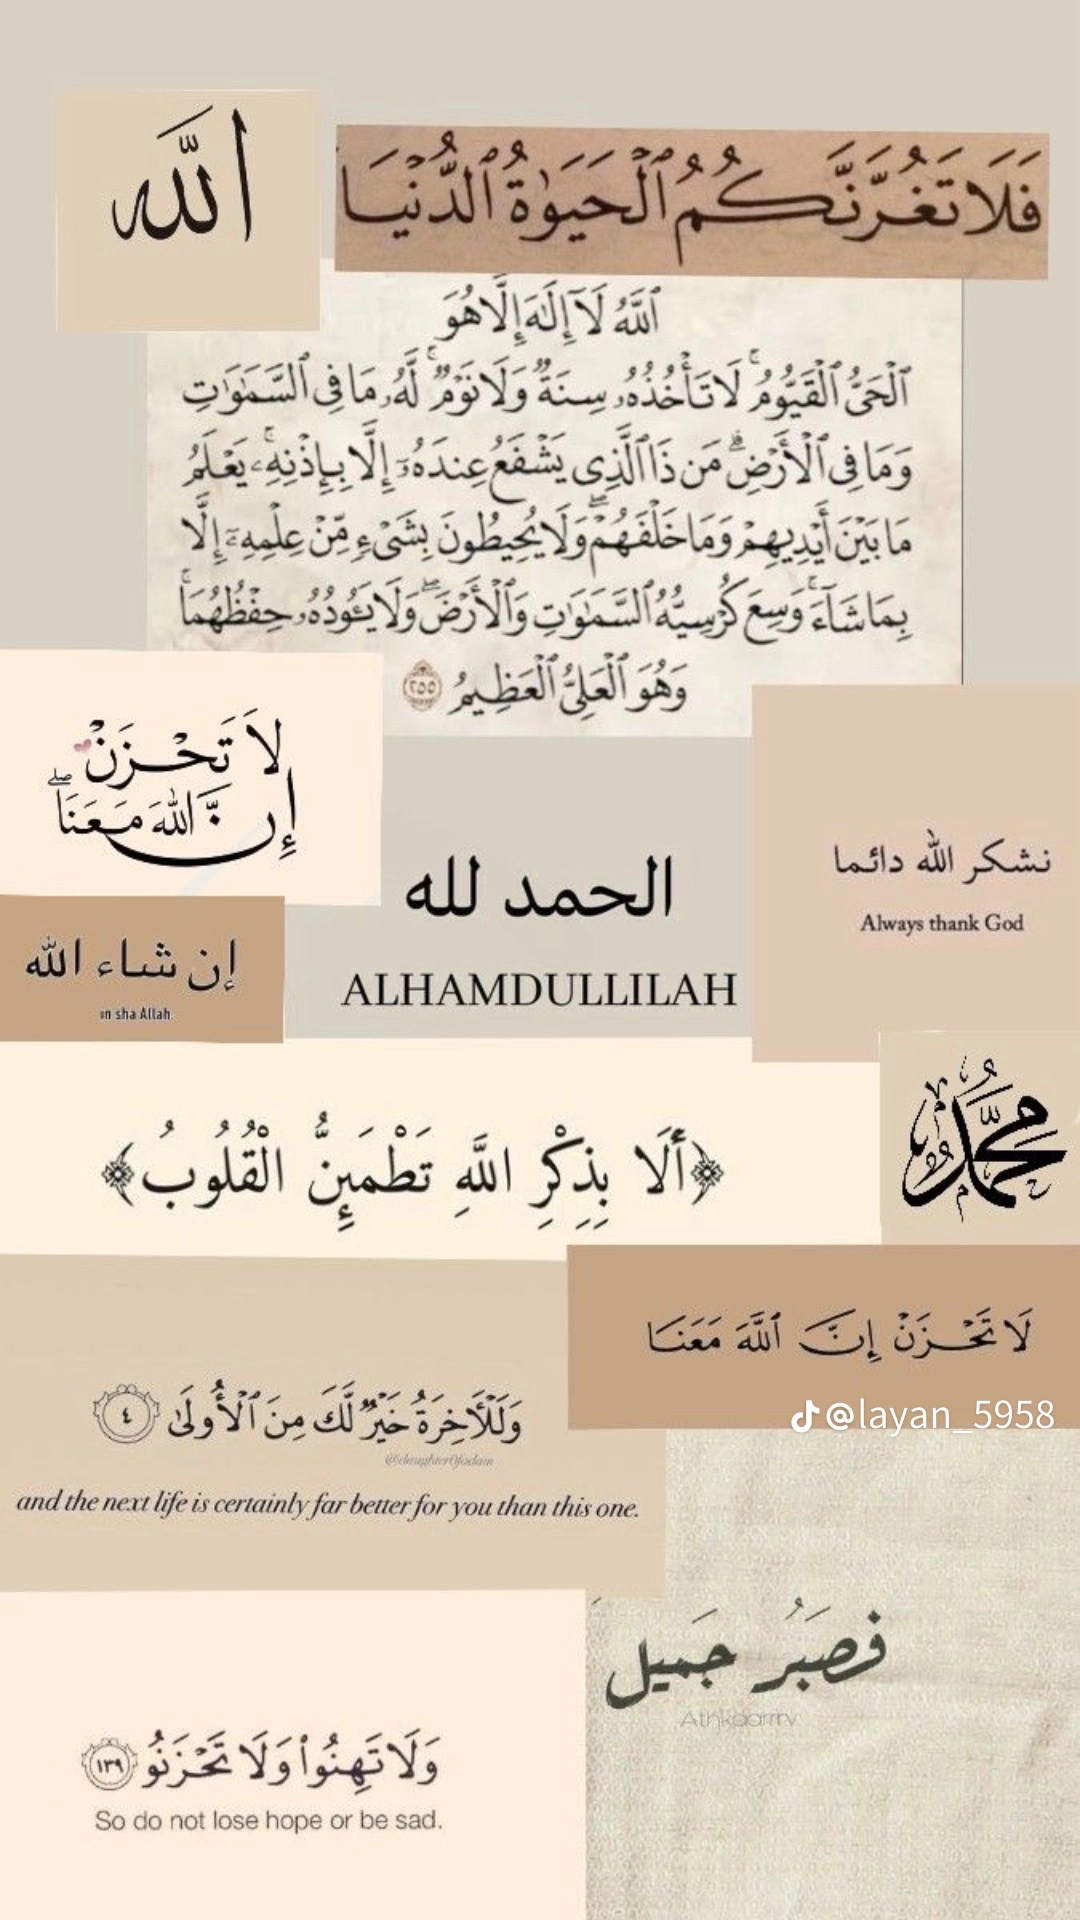 الله
فَلَا تَغُرَّنَّكُمُ ٱلْحَيَوٰةُ ٱلدُّنْيَا
ٱللَّهُ لَآ إِلَٰهَ إِلَّا هُوَ
ٱلْحَىُّ ٱلْقَيُّومُ ۚ لَا تَأْخُذُهُۥ سِنَةٌ وَلَا نَوْمٌ ۚ لَّهُۥ مَا فِى ٱلسَّمَٰوَٰتِ
وَمَا فِى ٱلْأَرْضِ ۗ مَن ذَا ٱلَّذِى يَشْفَعُ عِندَهُۥٓ إِلَّا بِإِذْنِهِۦ ۚ يَعْلَمُ
مَا بَيْنَ أَيْدِيهِمْ وَمَا خَلْفَهُمْ ۖ وَلَا يُحِيطُونَ بِشَىْءٍ مِّنْ عِلْمِهِۦٓ إِلَّا
بِمَا شَآءَ ۚ وَسِعَ كُرْسِيُّهُ ٱلسَّمَٰوَٰتِ وَٱلْأَرْضَ ۖ وَلَا يَـُٔودُهُۥ حِفْظُهُمَا ۚ
وَهُوَ ٱلْعَلِىُّ ٱلْعَظِيمُ ٢٥٥
لَا تَحْزَنْ
إِنَّ اللهَ مَعَنَا ۖ
نشكر الله دائما
Always thank God
الحمد لله
ALHAMDULLILAH
إن شاء الله
in sha Allah.
محمد
﴿أَلَا بِذِكْرِ اللَّهِ تَطْمَئِنُّ الْقُلُوبُ﴾
لَا تَحْزَنْ إِنَّ ٱللَّهَ مَعَنَا
@layan_5958
وَلَلْـَٔاخِرَةُ خَيْرٌ لَّكَ مِنَ ٱلْأُولَىٰ ٤
@daughterOfadam
and the next life is certainly far better for you than this one.
فَصَبْرٌ جَمِيل
Athkaarrrv
وَلَا تَهِنُوا۟ وَلَا تَحْزَنُو ١٣٩
So do not lose hope or be sad.